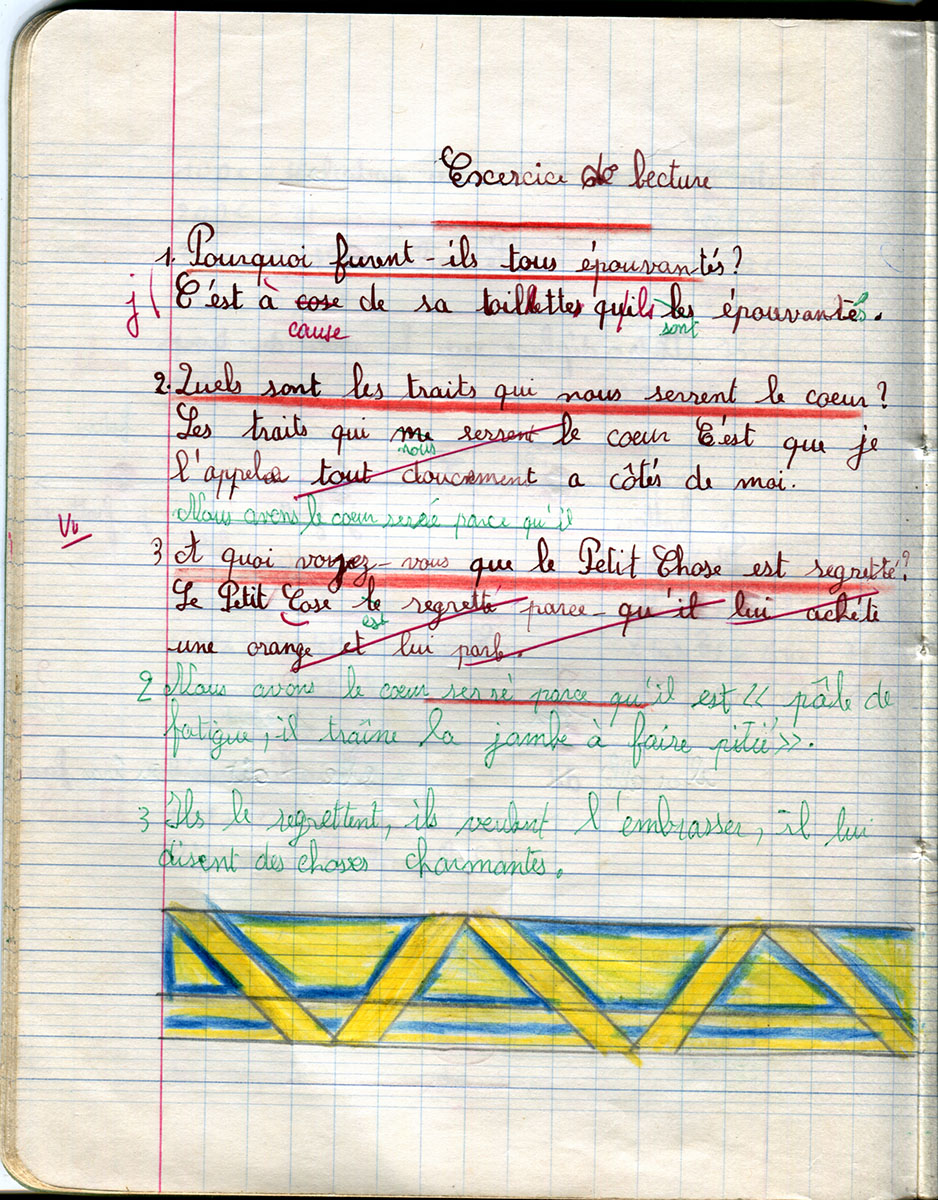 Excercice de lecture
1. Pourquoi furent-ils tous épouvantés?
j( C'est à cose de sa toillettes qu'ils les épouvantés.
cause sont
2. Quels sont les traits qui nous serrent le coeur?
Les traits qui me serrent le coeur C'est que je
nous
l'appela tout doucement a côtés de moi.
Nous avons le coeur serré parce qu'il
Vu
3 A quoi voyez-vous que le Petit Chose est regretté?
Le Petit Cose le regretté parce-qu'il lui achéte
est
une orange et lui parle.
2 Nous avons le coeur serré parce qu'il est « pâle de
fatigue, il traîne la jambe à faire pitié».
3 Ils le regrettent, ils veulent l'embrasser, il lui
disent des choses charmantes.